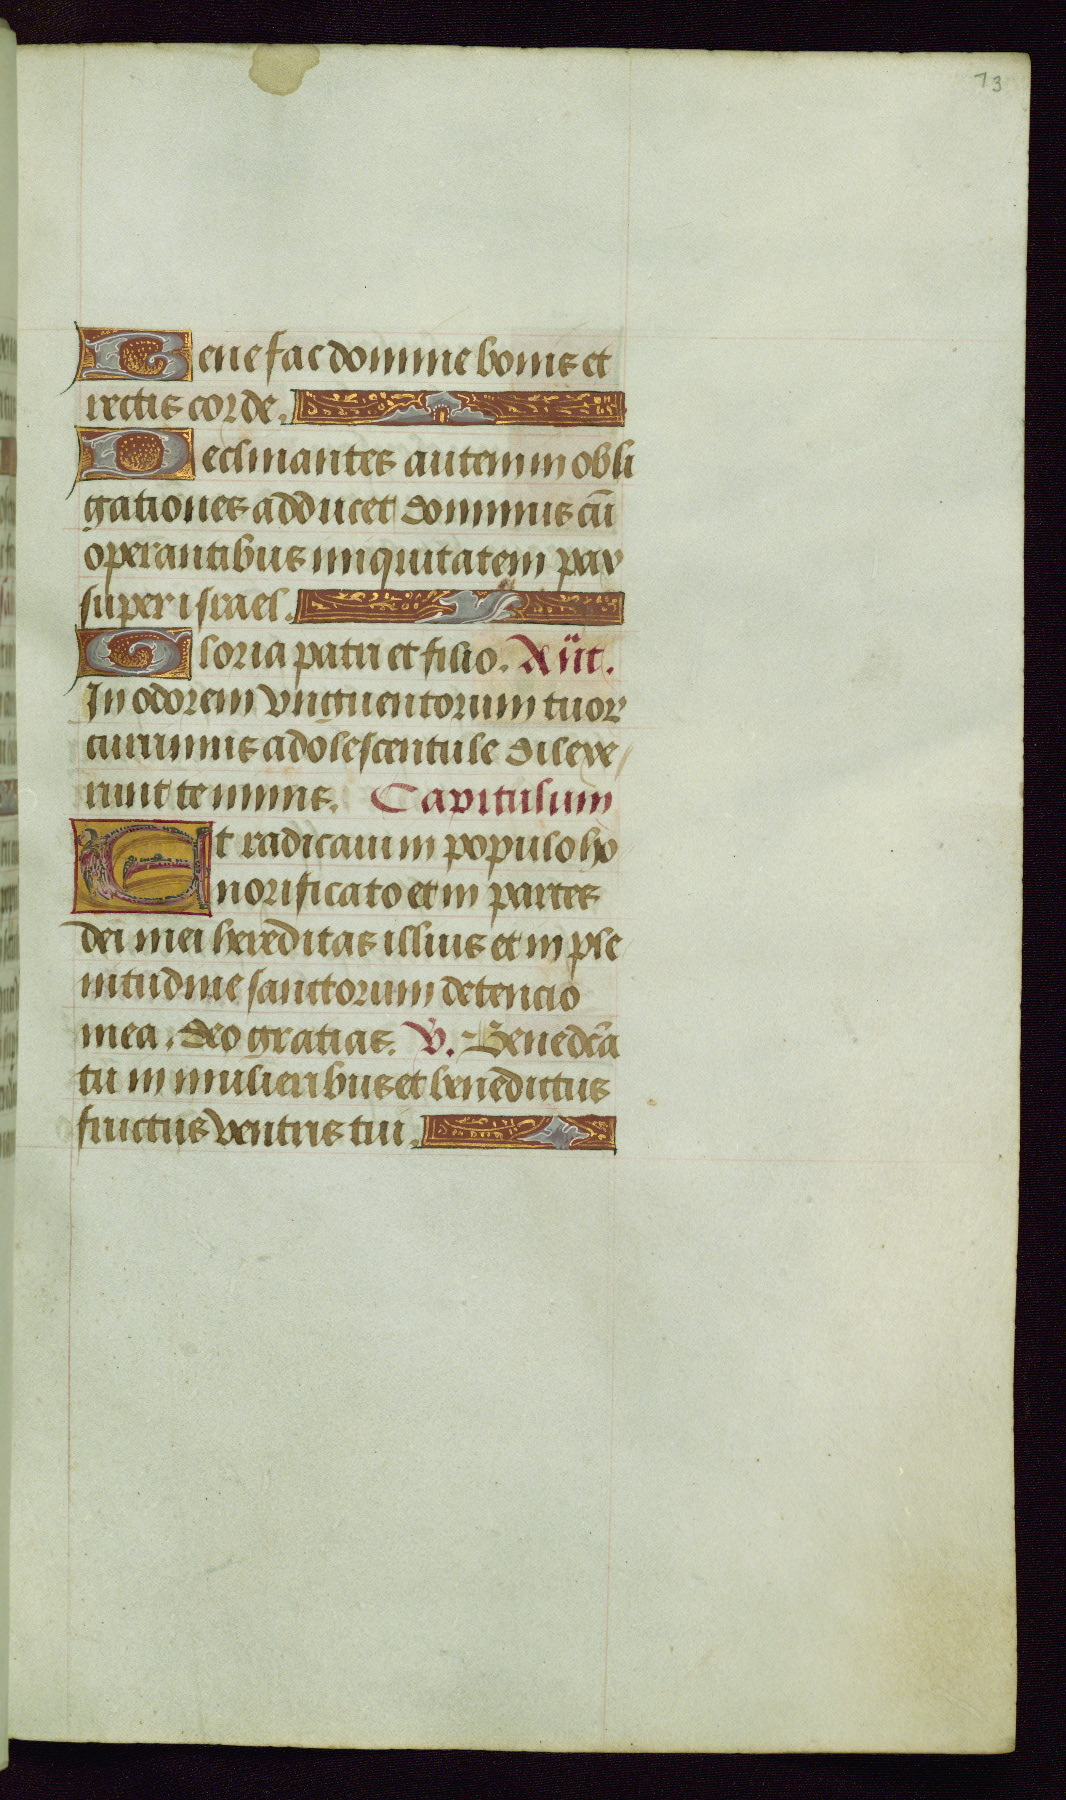 73
Bene fac domine bonis et
rectis corde.
Declinantes autem in obli
gationes adducet dominus cū
operantibus iniquitatem pax
super israel.
Gloria patri et filio. Añt.
In odorem vnguentorum tuor
currimus adolescentule dilexe/
runt te nimis. Capitulum
Et radicaui in populo ho
norificato et in partes
dei mei hereditas illius et in ple
nitudine sanctorum detencio
mea. Deo gratias. V. Benedc̄a
tu in mulieribus et benedictus
fructus ventris tui.